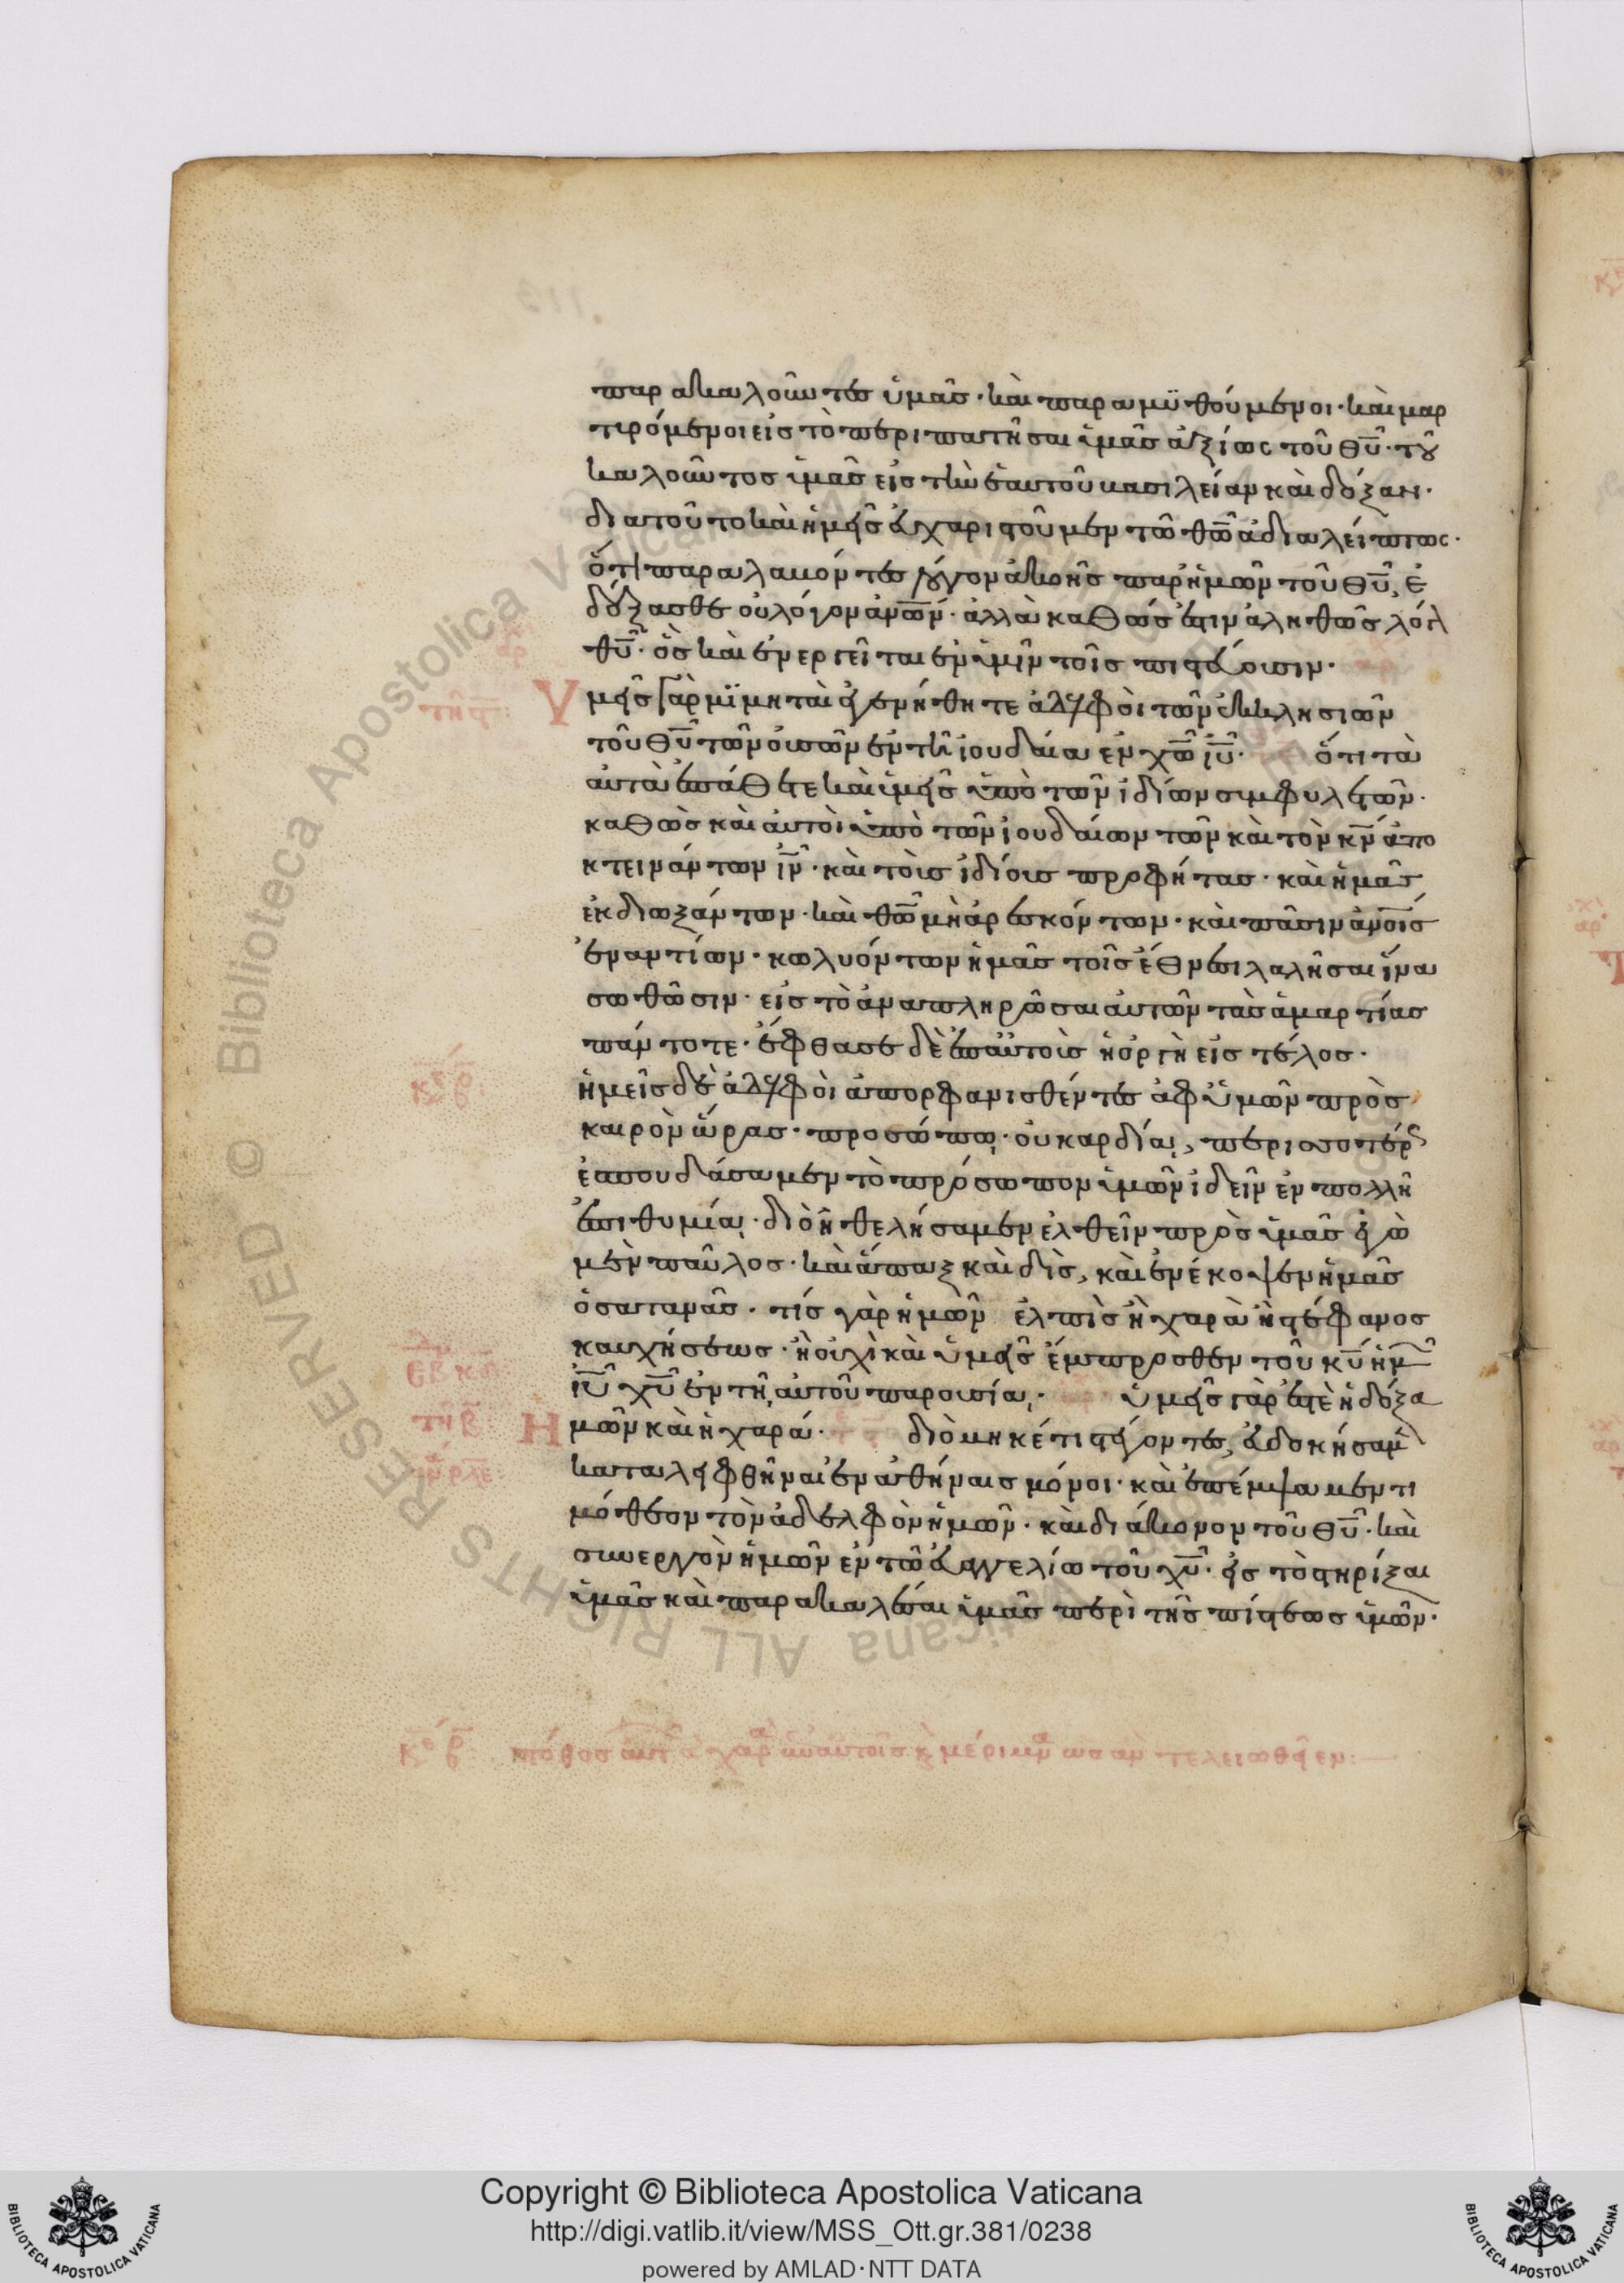 παρακαλοῦντες ὑμᾶς· καὶ παραμϋθούμενοι· καὶ μαρ
τιρόμενοι εἰς τὸ περιπατῆσαι ὑμᾶς ἀξίως τοῦ θῦ· τοῦ
καλοῦντος ὑμᾶς εἰς τὴν ἑαυτοῦ βασιλείαν καὶ δόξαν·
διατοῦτο καὶ ἡμεῖς εὐχαριστοῦμεν τῶ θῶ ἀδιαλείπτως·
ὅτι παραλαβόντες λόγον ἀκοῆς παρ' ἡμῶν τοῦ θῦ, ἐ
δέξασθε οὐ λόγον ἀνῶν· ἀλλὰ καθώς ἐστιν ἀληθῶς λόγ
θῦ· ὃς καὶ ἐνεργεῖται ἐν ὑμῖν τοῖς πιστεύουσιν·
τῇ ϛ:
Υμεῖς γὰρ μϊμηταὶ ἐγενήθητε ἀδελφοὶ τῶν ἐκκλησιῶν
τοῦ θῦ τῶν οὐσῶν ἐν τῇ ἰουδαία ἐν χῶ ἰῦ· ὅτι τὰ
αὐτὰ ἐπάθετε καὶ ὑμεῖς ὑπὸ τῶν ἰδίων συμφυλετῶν·
καθὼς καὶ αὐτοὶ ὑπὸ τῶν ἰουδαίων τῶν καὶ τὸν κν ἀπο
κτεινάντων ἰν· καὶ τοὺς ἰδίους προφήτας· καὶ ἡμᾶς
ἐκδιωξάντων· καὶ θῶ μὴ ἀρεσκόντων· καὶ πᾶσιν ἀνοις
ἐναντίων· κωλυόντων ἡμᾶς τοῖς ἔθνεσι λαλῆσαι ἵνα
σωθῶσιν· εἰς τὸ ἀναπληρῶσαι αὐτῶν τὰς ἁμαρτίας
πάντοτε· ἔφθασε δὲ ἐπ' αὐτοὺς ἡ ὀργὴ εἰς τέλος·
κε β:
ἡμεῖς δὲ ἀδελφοὶ ἀπορφανισθέντες ἀφ' ὑμῶν πρὸς
καιρὸν ὥρας· προσώπω· οὐ καρδία, περισσοτέρ
ἐσπουδάσαμεν τὸ πρόσωπον ὑμῶν ἰδεῖν ἐν πολλῆ
ἐπιθυμία· διὸ ἠθελήσαμεν ἐλθεῖν πρὸς ὑμᾶς ἐγὼ
μὲν παῦλος· καὶ ἅπαξ καὶ δὶς, καὶ ἐνέκοψεν ἡμᾶς
ὁ σατανᾶς· τίς γὰρ ἡμῶν ἐλπὶς ἢ χαρὰ ἢ στέφανος
καυχήσεως· ἢ οὐχὶ καὶ ὑμεῖς ἔμπροσθεν τοῦ κῦ ἡμ
ἰῦ χῦ ἐν τῇ αὐτοῦ παρουσία· ὑμεῖς γὰρ ἐστὲ ἡ δόξα
τῇ β:
Ημῶν καὶ ἡ χαρά· διὸ μηκέτι στέγοντες, εὐδοκήσαμ
καταλειφθῆναι ἐν ἀθήναις μόνοι· καὶ ἐπέμψαμεν τι
μόθεον τὸν ἀδελφὸν ἡμῶν· καὶ διάκονον τοῦ θῦ· καὶ
συνεργὸν ἡμῶν ἐν τῶ εὐαγγελίω τοῦ χῦ· εἰς τὸ στηρίξαι
ὑμᾶς καὶ παρακαλέσαι ὑμᾶς περὶ τῆς πίστεως ὑμῶν·
Copyright © Biblioteca Apostolica Vaticana
http://digi.vatlib.it/view/MSS_Ott.gr.381/0238
powered by AMLAD·NTT DATA